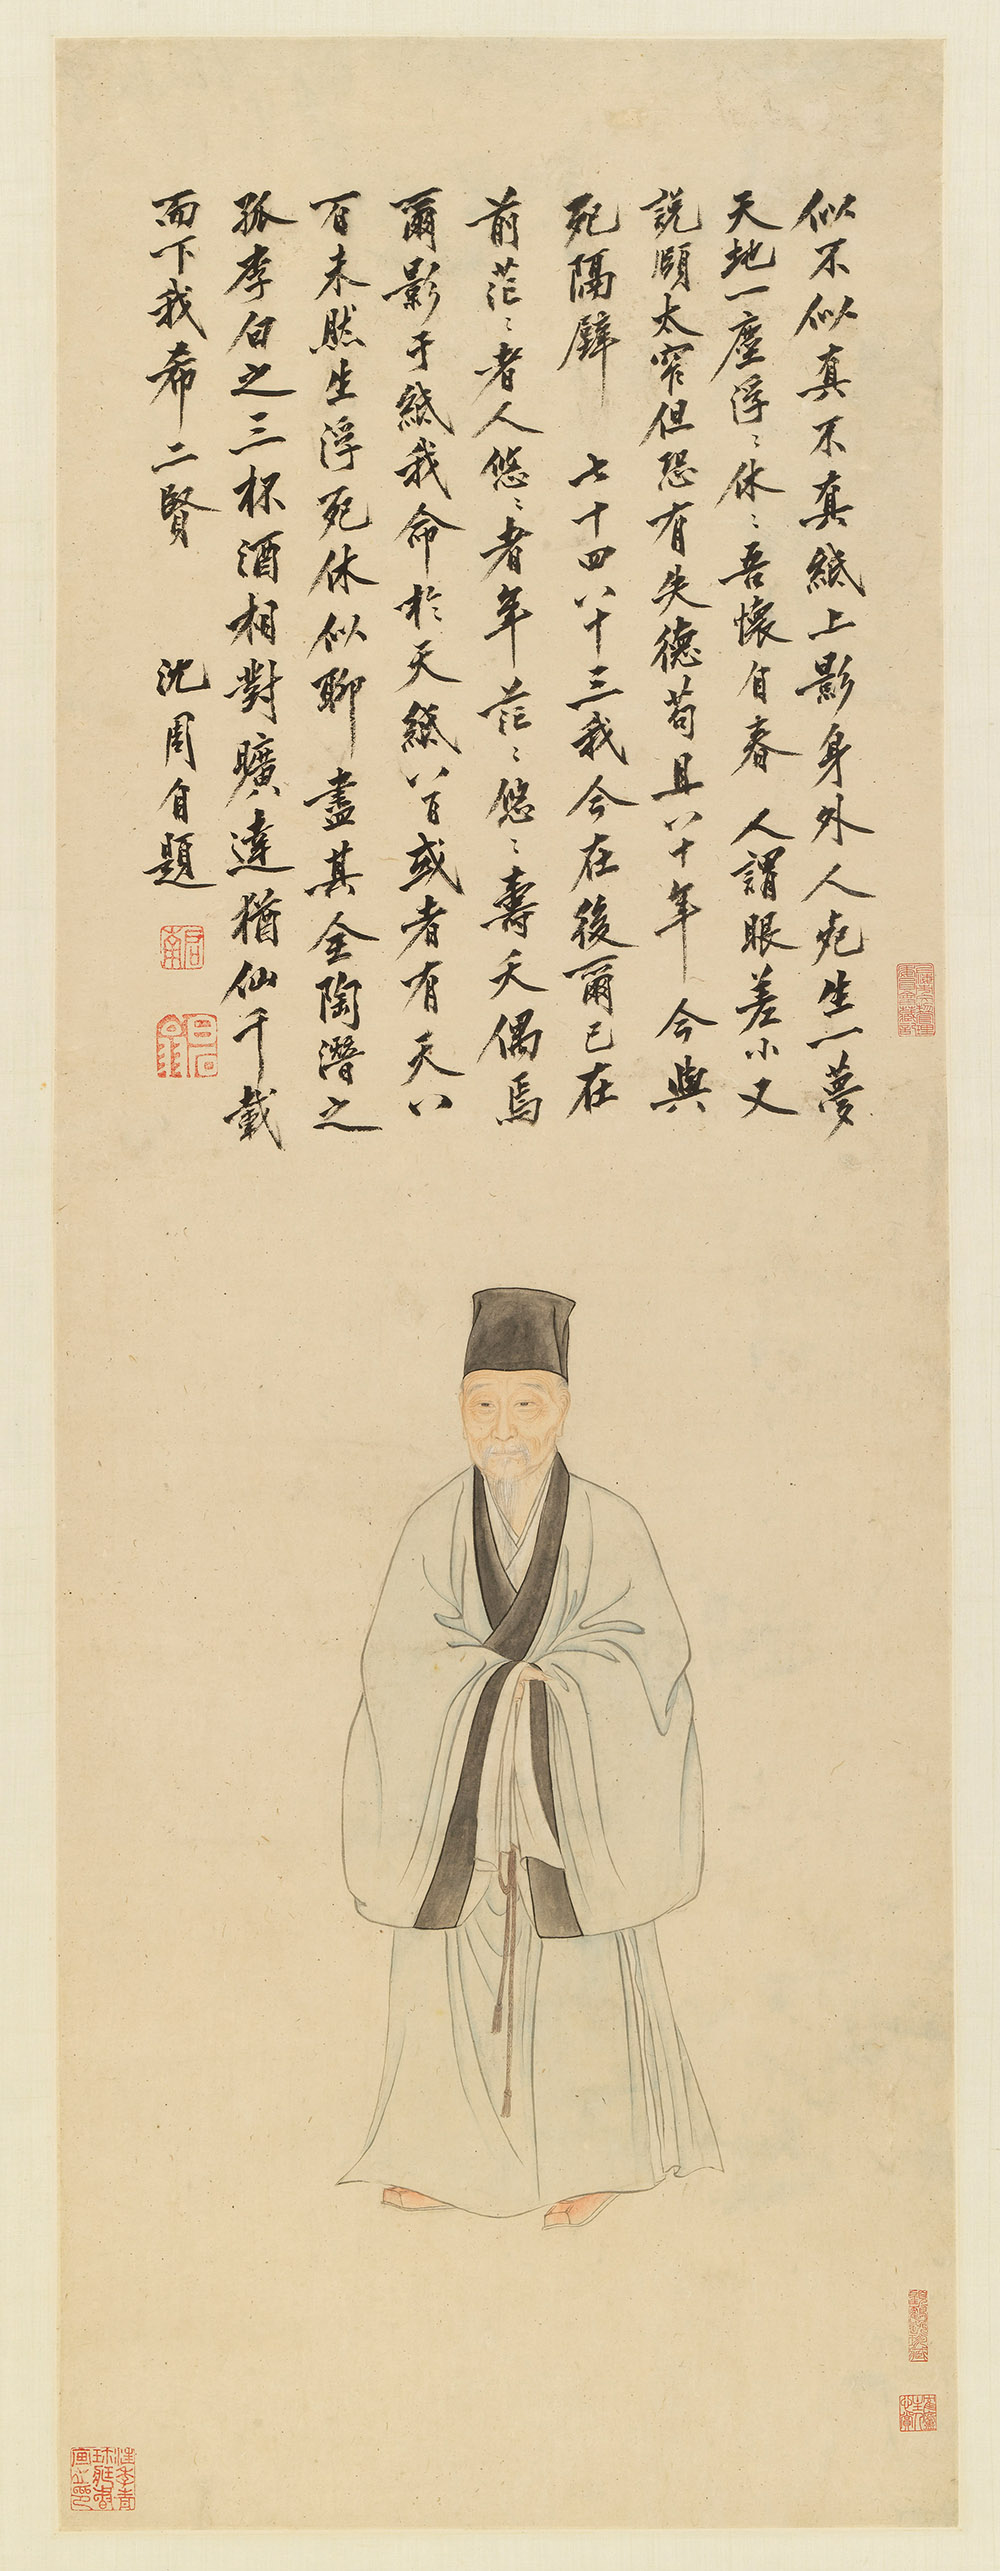 似不似真不真紙上影身外人死生一夢
天地一塵浮〻休〻吾懷自春 人謂眼差小又
説頤太窄但恐有失德苟且八十年 今與
死隔壁 七十四八十三我今在後爾已在
前茫〻者人悠〻者年茫〻悠〻壽夭偶焉
爾影于紙我命於天紙八百或者有天八
百未然生浮死休似聊盡其全陶潛之
孤李白之三杯酒相對曠達猶仙千載
而下我希二賢 沈周自題
啓南
白石翁
汪季青
珍藏書
畫之印